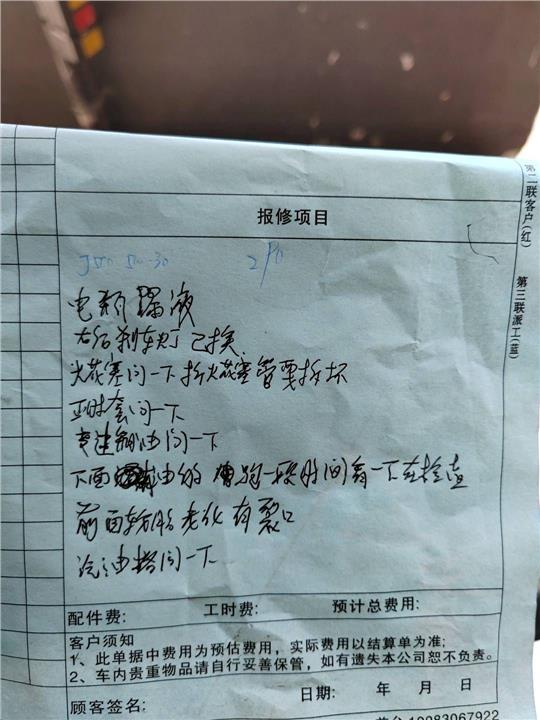 第二联客户(红)
第三联派工(蓝)
报修项目
电瓶漏液
右后刹车灯已换
火花塞问一下拆火花塞管要拆坏
正时套问一下
变速箱油问一下
下面 油的 跑一段时间看一下在检查
前面轮胎老化有裂口
汽油格问一下
配件费: 工时费: 预计总费用:
客户须知
1、此单据中费用为预估费用，实际费用以结算单为准;
2、车内贵重物品请自行妥善保管，如有遗失本公司恕不负责。
日期: 年 月 日
顾客签名: